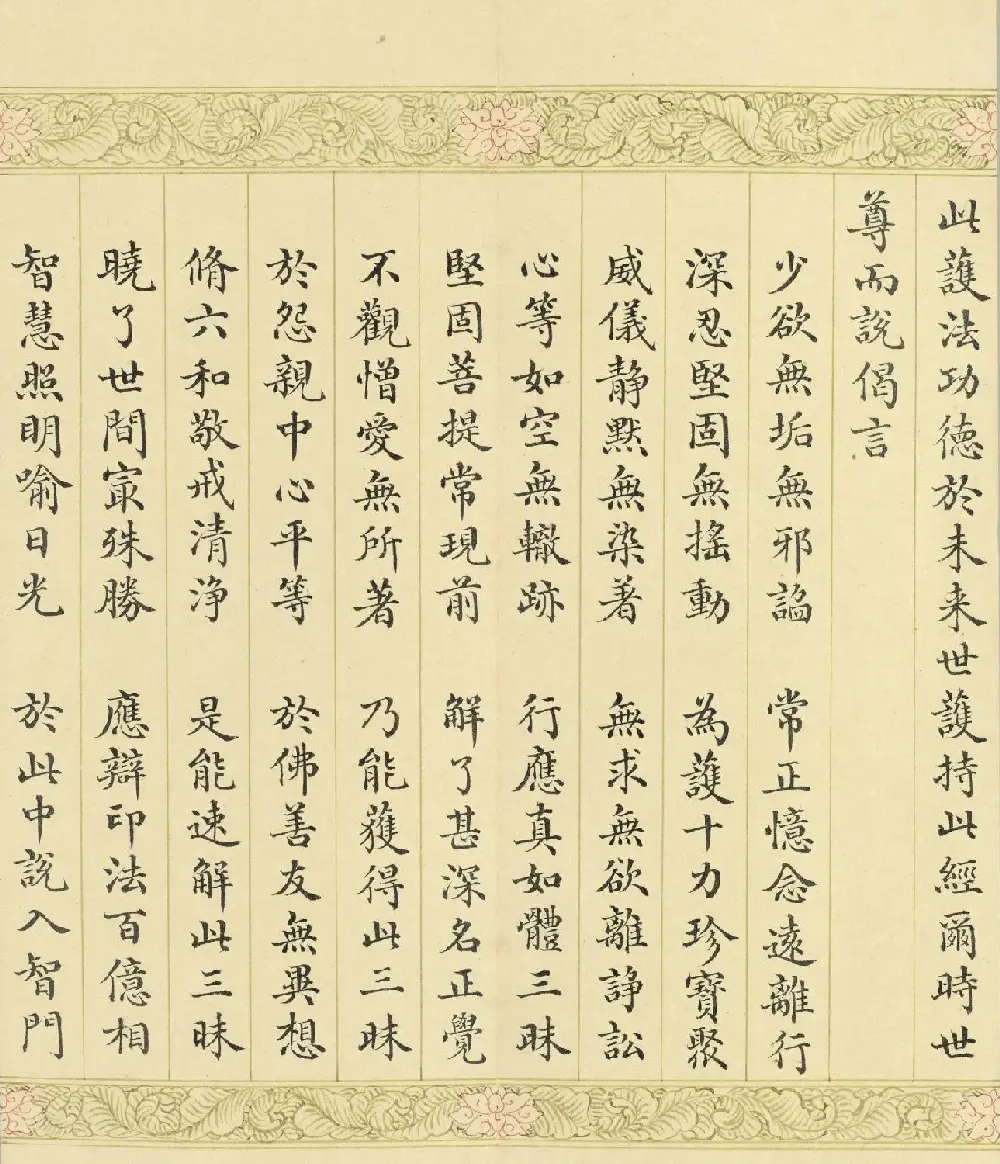 此護法功德於未来世護持此經爾時世
尊而說偈言
少欲無垢無邪謟 常正憶念遠離行
深忍堅固無搖動 為護十力珍寶聚
威儀静黙無染著 無求無欲離諍訟
心等如空無轍跡 行應真如體三昧
堅固菩提常現前 解了甚深名正覺
不觀憎愛無所著 乃能獲得此三昧
於怨親中心平等 於佛善友無異想
脩六和敬戒清淨 是能速解此三昧
曉了世間㝡殊勝 應辯印法百億相
智慧照明喻日光 於此中說入智門